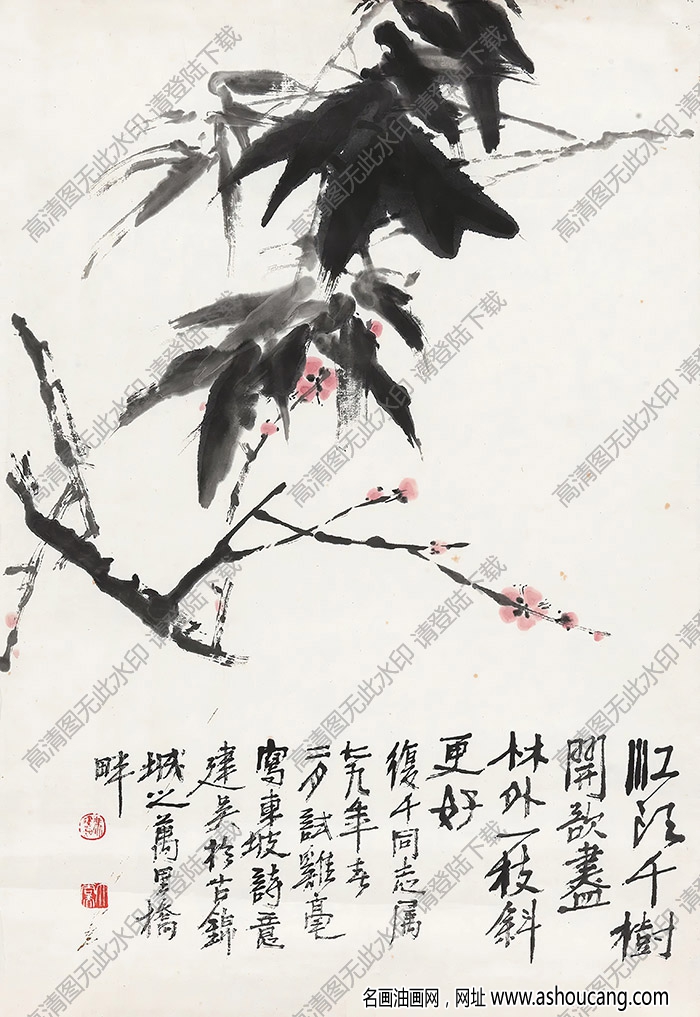 江頭千樹
開欲盡
林外一枝斜
更好
復千同志属
七九年春
二月試雞毫
寫東坡詩意
建吴於古錦
城之萬里橋
畔
高清图无此水印 请登陆下载
名画油画网，网址 www.ashoucang.com